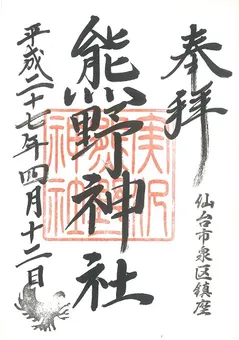 奉拝
仙台市泉区鎮座
熊野神社
平成二十七年四月十二日